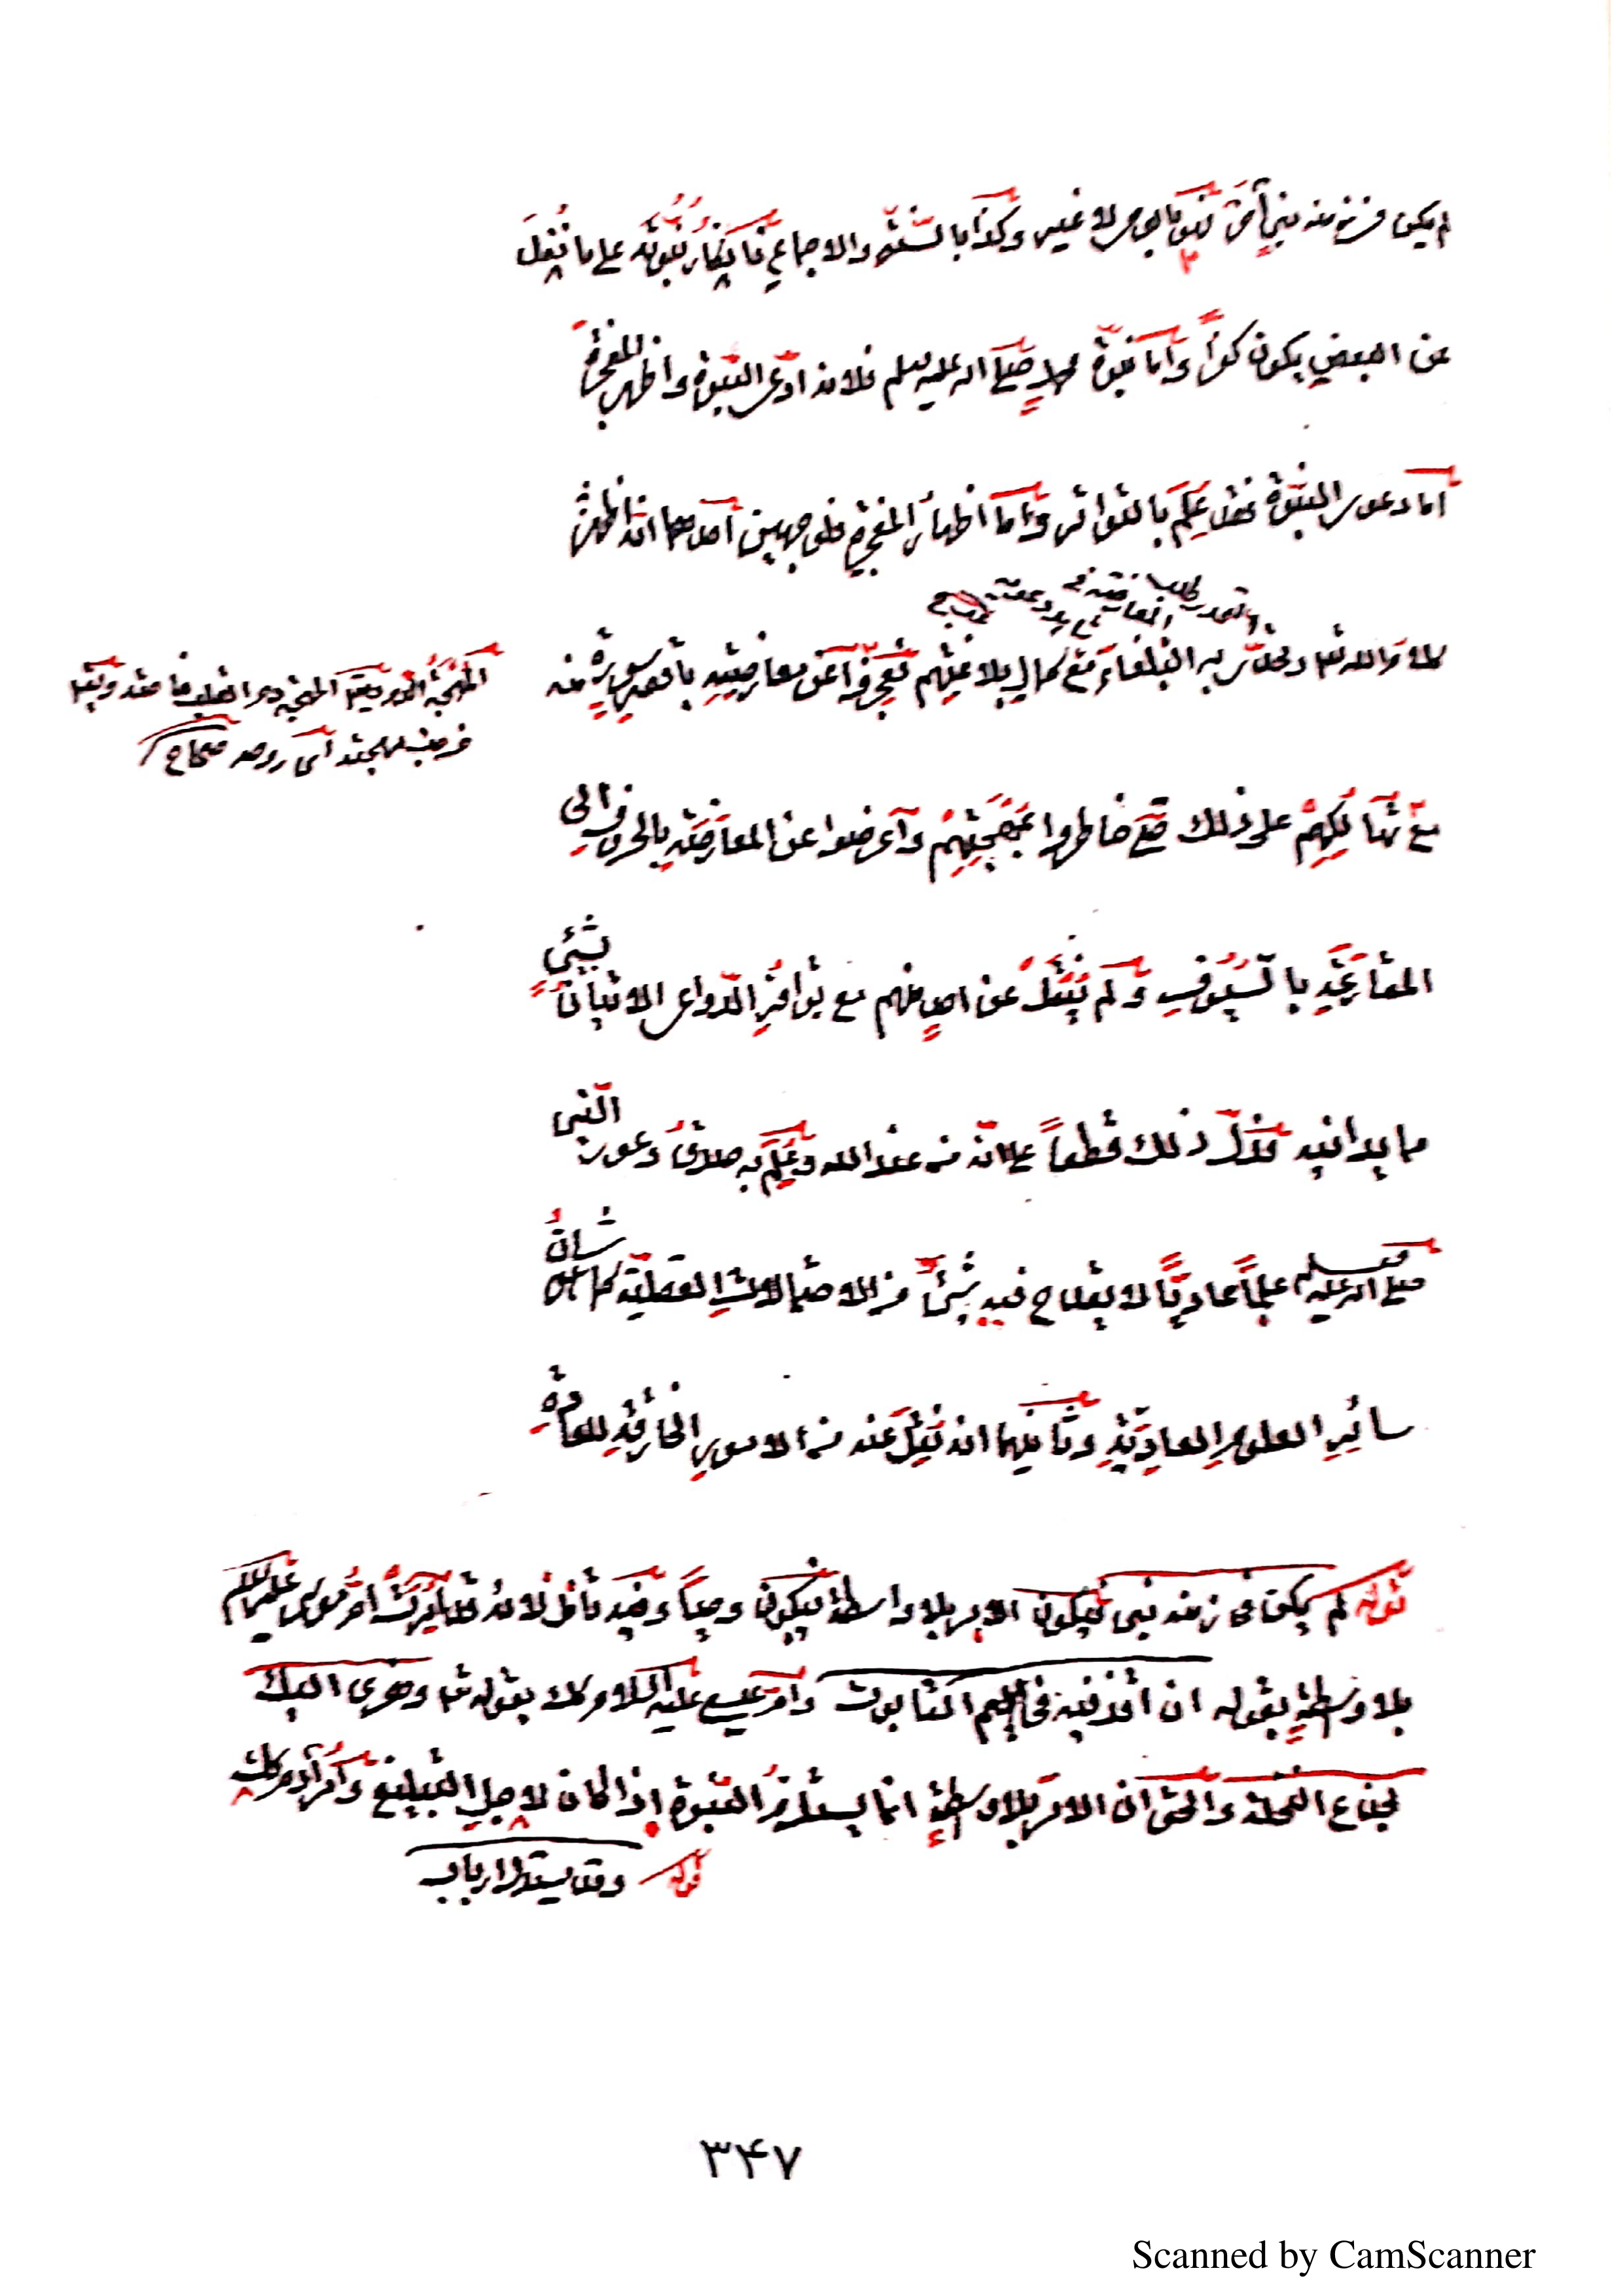 لم يكن في زمنه نبي آخر فهو بالوحي لا غير وكذا بالسنة والاجماع فانكار نبوته على ما نقل
عن البعض يكون كفراً واما نبوة محمد صلى الله عليه وسلم فلانه ادعى النبوة واظهر المعجزة
اما دعوى النبوة فقد علم بالتواتر واما اظهار المعجزة فلوجهين احدهما انه اظهر
كلام الله تعا وتحدى به البلغاء مع كمال بلاغتهم فعجزوا عن معارضته باقصر سورة منه
المهجة الدم يقال المهجة دم القلب خاصة ويقال
خرجت مهجته اى روحه صحاح
مع تهالكهم على ذلك حتى خاطروا بمهجتهم واعرضوا عن المعارضة بالحروف الى
المقارعة بالسيوف ولم ينقل عن احد منهم مع توافر الدواعى الاتيان بشيئ
مما يدانيه فدل ذلك قطعاً على انه من عند الله وعلم به صدق دعوى النبى
صلى الله عليه وسلم علماً عادياً لا يقدح فيه شئ من الاحتمالات العقلية كما هو شان
سائر العلوم العادية وثانيهما انه نقل عنه من الامور الخارقة للعادة
قوله لم يكن فى زمنه نبى فيكون الامر بلا واسطة فيكون وحياً وفيه تأمل لانه قد ام موسى عليه السلام
بلا واسطة بقوله ان اقذفيه فى اليم التابوت وام عيسى عليه السلام كلا بقوله تعا وهزى اليك
بجذع النخلة والحق ان الامر بلا واسطة انما يستلزم النبوة اذا كان لاجل التبليغ وامر آدم كذلك
قوله وقد يستدل ارباب
٣٤٧
Scanned by CamScanner